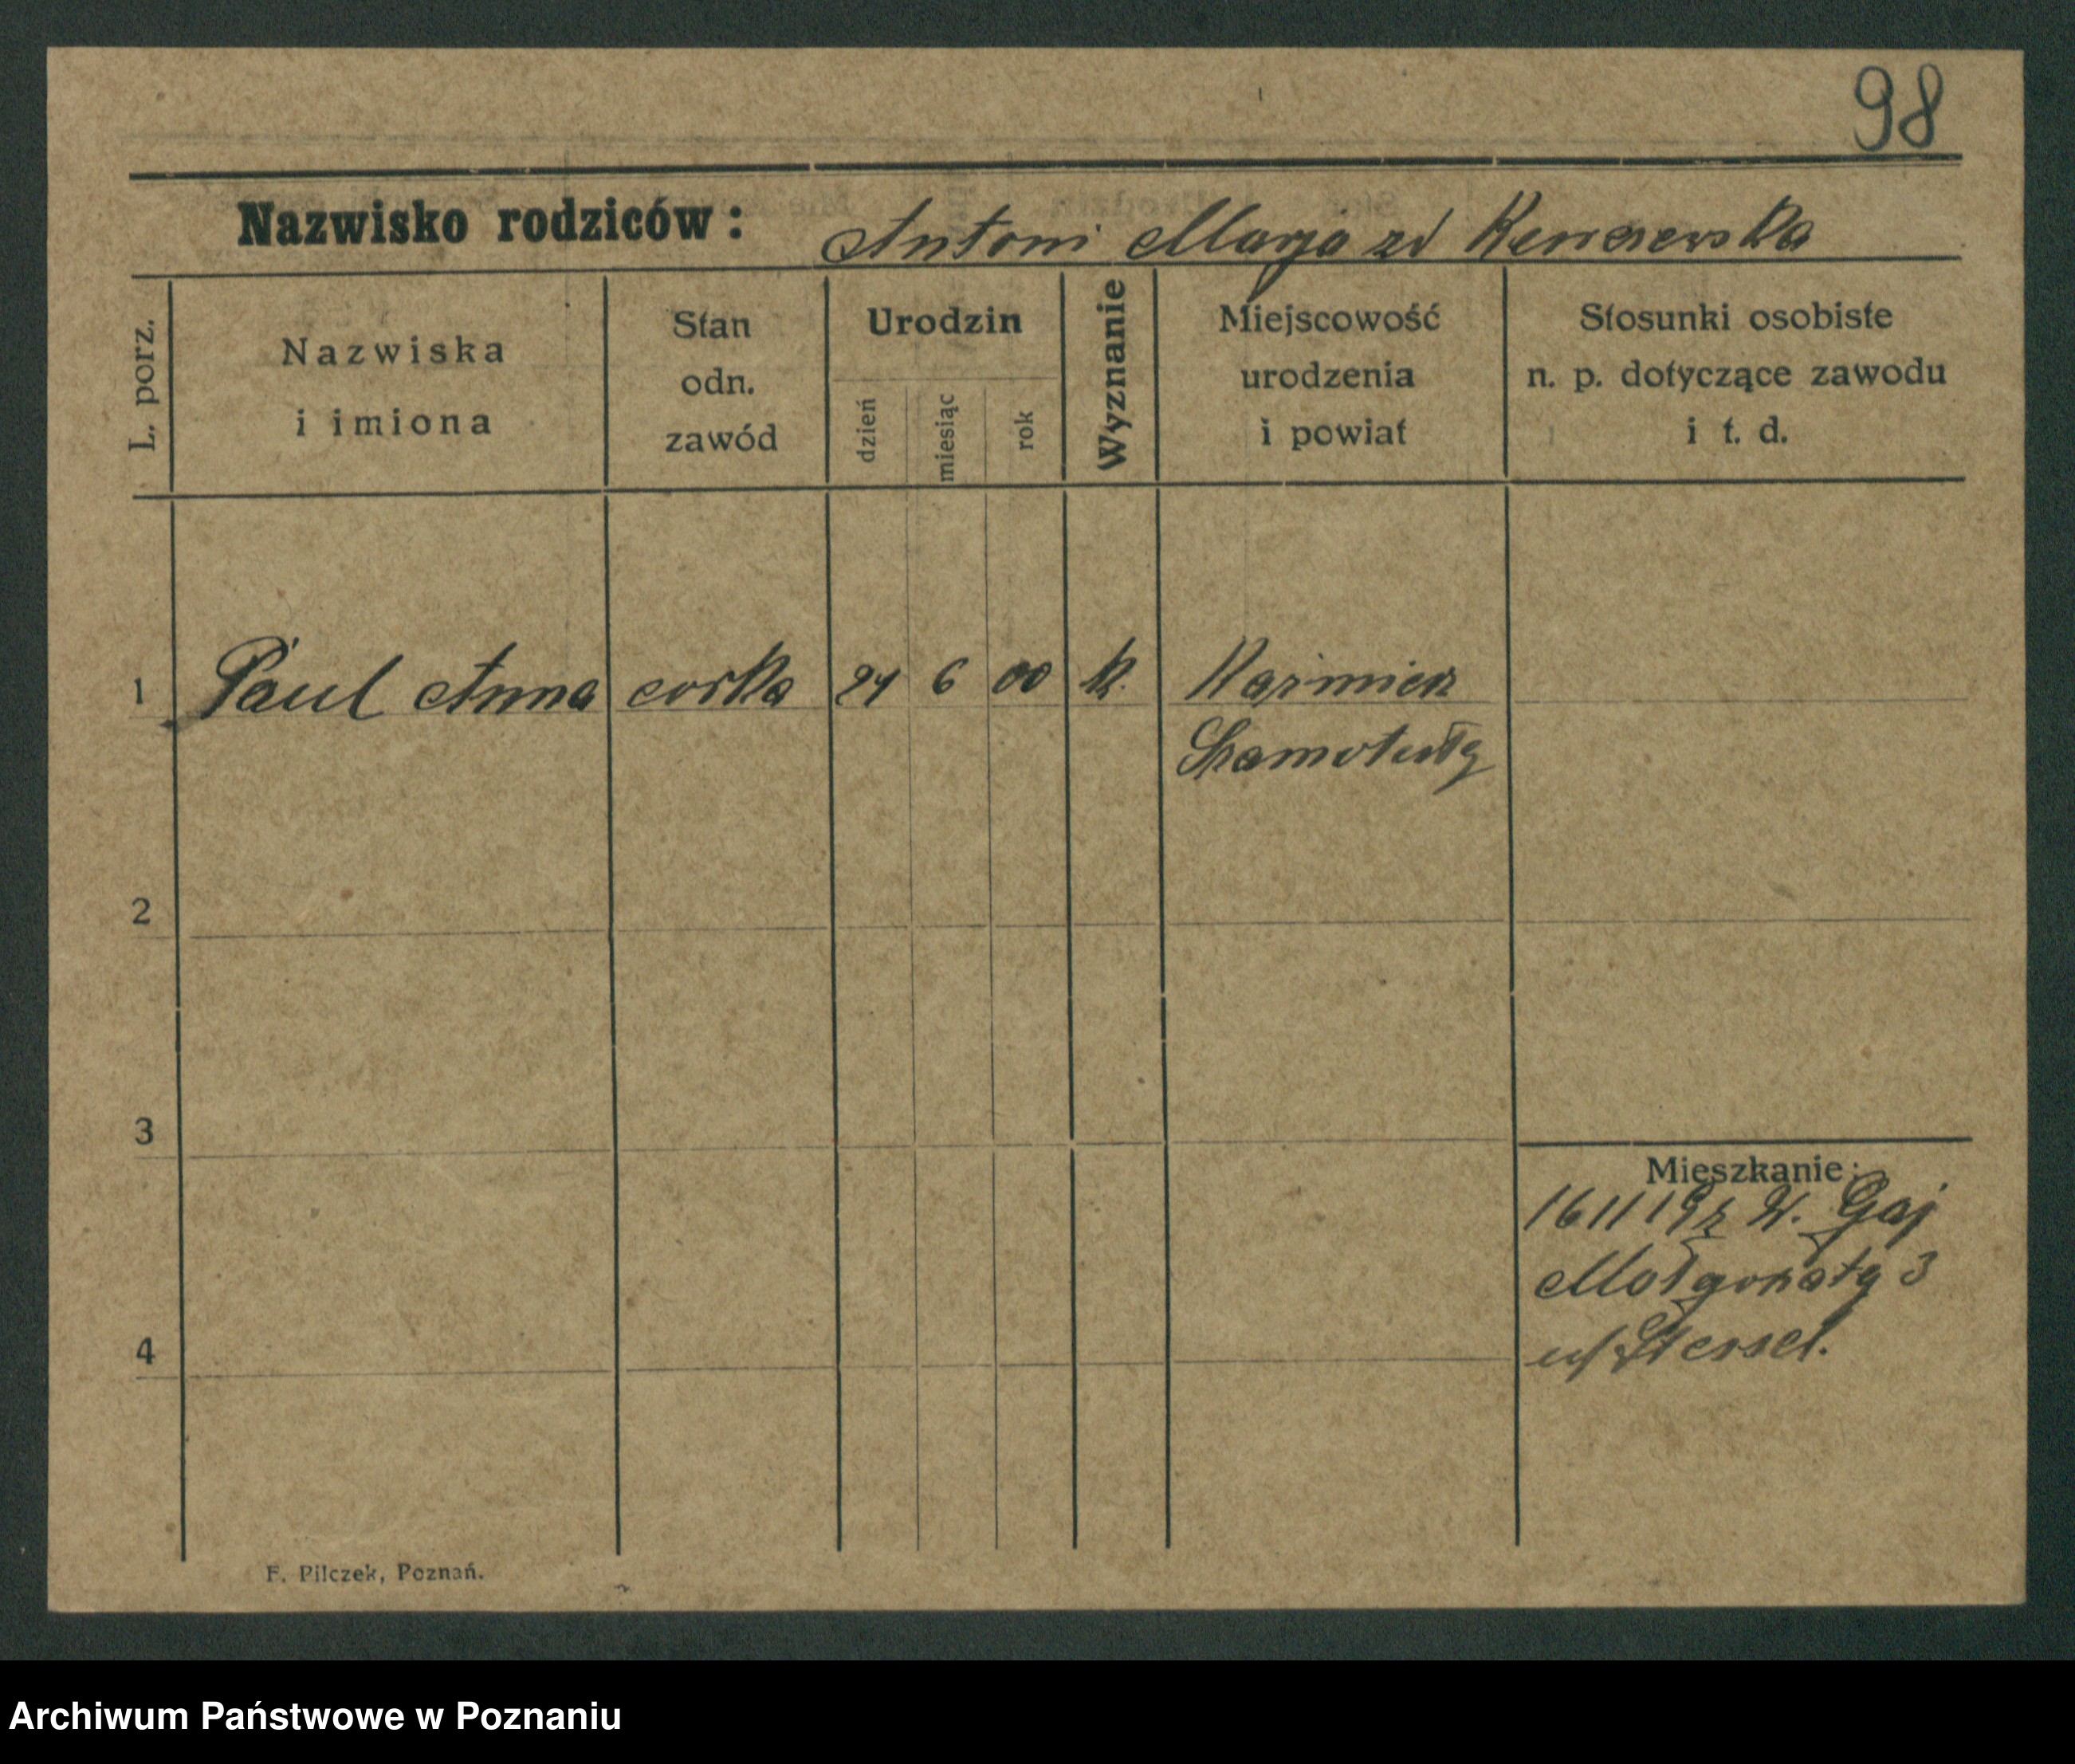 98
Nazwisko rodziców: Antoni Marja zd
L. porz.
Nazwiska
i imiona
Stan
odn.
zawód
Urodzin
dzień
miesiąc
rok
Wyznanie
Miejscowość
urodzenia
i powiat
Stosunki osobiste
n. p. dotyczące zawodu
i t. d.
1 Paul Anna corka 24 6 00 k. Kazmierz
Szamotuły
2
3
Mieszkanie:
Gaj
3
4
F. Pilczek, Poznań.
Archiwum Państwowe w Poznaniu